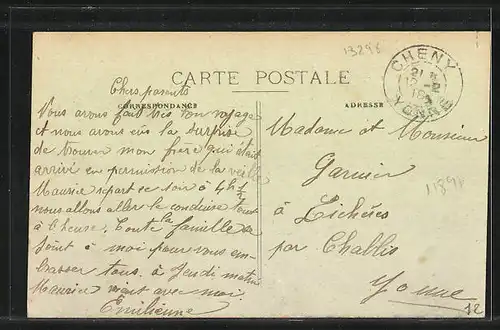 13298
CHENY
YONNE
CARTE POSTALE
CORRESPONDANCE
ADRESSE
Chers parents
Vous avons fait très bon voyage
et nous avons eu la surprise
de trouver mon frère qui était
arrivé en permission de la veille
Maurice repart ce soir à 4h 1/2
nous allons aller le conduire tous
à l'heure. Toute la famille se
joint à moi pour vous em-
brasser tous. à Jeudi matin
Maurice vient avec moi.
Emilienne
Madame et Monsieur
Garnier
à Lichères
par Chablis
Yonne
11898
12